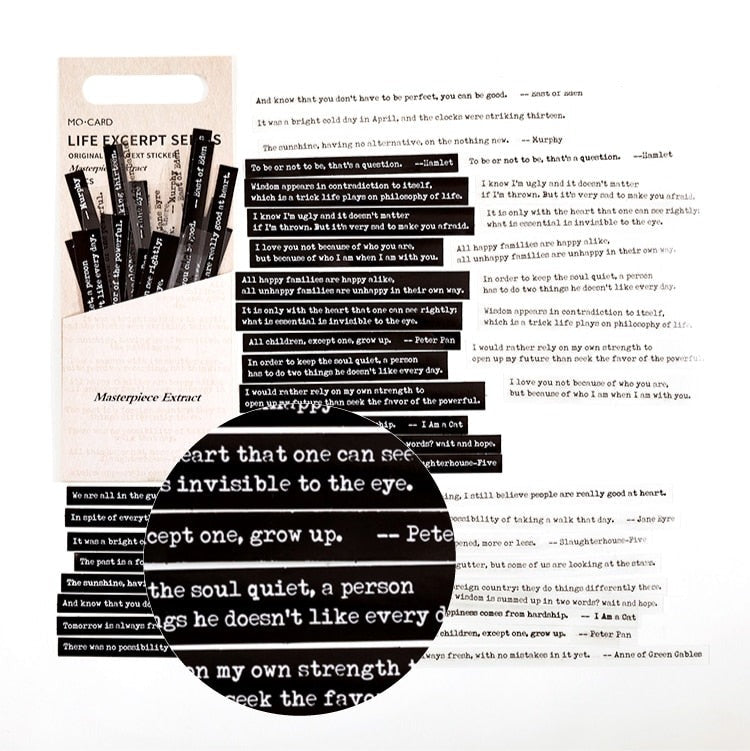 MO·CARD
LIFE EXCERPT SE S
ORIGINAL EXT STICKER
Masterpiece Extract
CS
-- Murphy
king thirteen.
Jane Eyre
-- Murphy
East of Eden
-- East of Eden
et, a person
't like every day.
vor of the powerful.
ng rightly;
you can be good.
are really good at heart.
Masterpiece Extract
And know that you don't have to be perfect, you can be good. -- East of Eden
It was a bright cold day in April, and the clocks were striking thirteen.
The sunshine, having no alternative, on the nothing new. -- Murphy
To be or not to be, that's a question. --Hamlet
To be or not to be, that's a question. --Hamlet
Wisdom appears in contradiction to itself,
which is a trick life plays on philosophy of life.
I know I'm ugly and it doesn't matter
if I'm thrown. But it's very sad to make you afraid.
I know I'm ugly and it doesn't matter
if I'm thrown. But it's very sad to make you afraid.
It is only with the heart that one can see rightly;
what is essential is invisible to the eye.
I love you not because of who you are,
but because of who I am when I am with you.
All happy families are happy alike,
all unhappy families are unhappy in their own way.
All happy families are happy alike,
all unhappy families are unhappy in their own way.
In order to keep the soul quiet, a person
has to do two things he doesn't like every day.
It is only with the heart that one can see rightly;
what is essential is invisible to the eye.
Wisdom appears in contradiction to itself,
which is a trick life plays on philosophy of life.
All children, except one, grow up. -- Peter Pan
I would rather rely on my own strength to
open up my future than seek the favor of the powerful.
In order to keep the soul quiet, a person
has to do two things he doesn't like every day.
I love you not because of who you are,
but because of who I am when I am with you.
I would rather rely on my own strength to
open up my future than seek the favor of the powerful.
hip. -- I Am a Cat
words? wait and hope.
ughterhouse-Five
happy
eart that one can see
s invisible to the eye.
cept one, grow up. -- Pete
the soul quiet, a person
gs he doesn't like every d
on my own strength t
seek the favo
We are all in the gu
In spite of everyt
It was a bright c
The past is a fo
The sunshine, hav
And know that you do
Tomorrow is always fr
There was no possibility
ing, I still believe people are really good at heart.
ossibility of taking a walk that day. -- Jane Eyre
pened, more or less. -- Slaughterhouse-Five
gutter, but some of us are looking at the stars.
reign country: they do things differently there.
wisdom is summed up in two words? wait and hope.
ppiness comes from hardship. -- I Am a Cat
children, except one, grow up. -- Peter Pan
ways fresh, with no mistakes in it yet. -- Anne of Green Gables